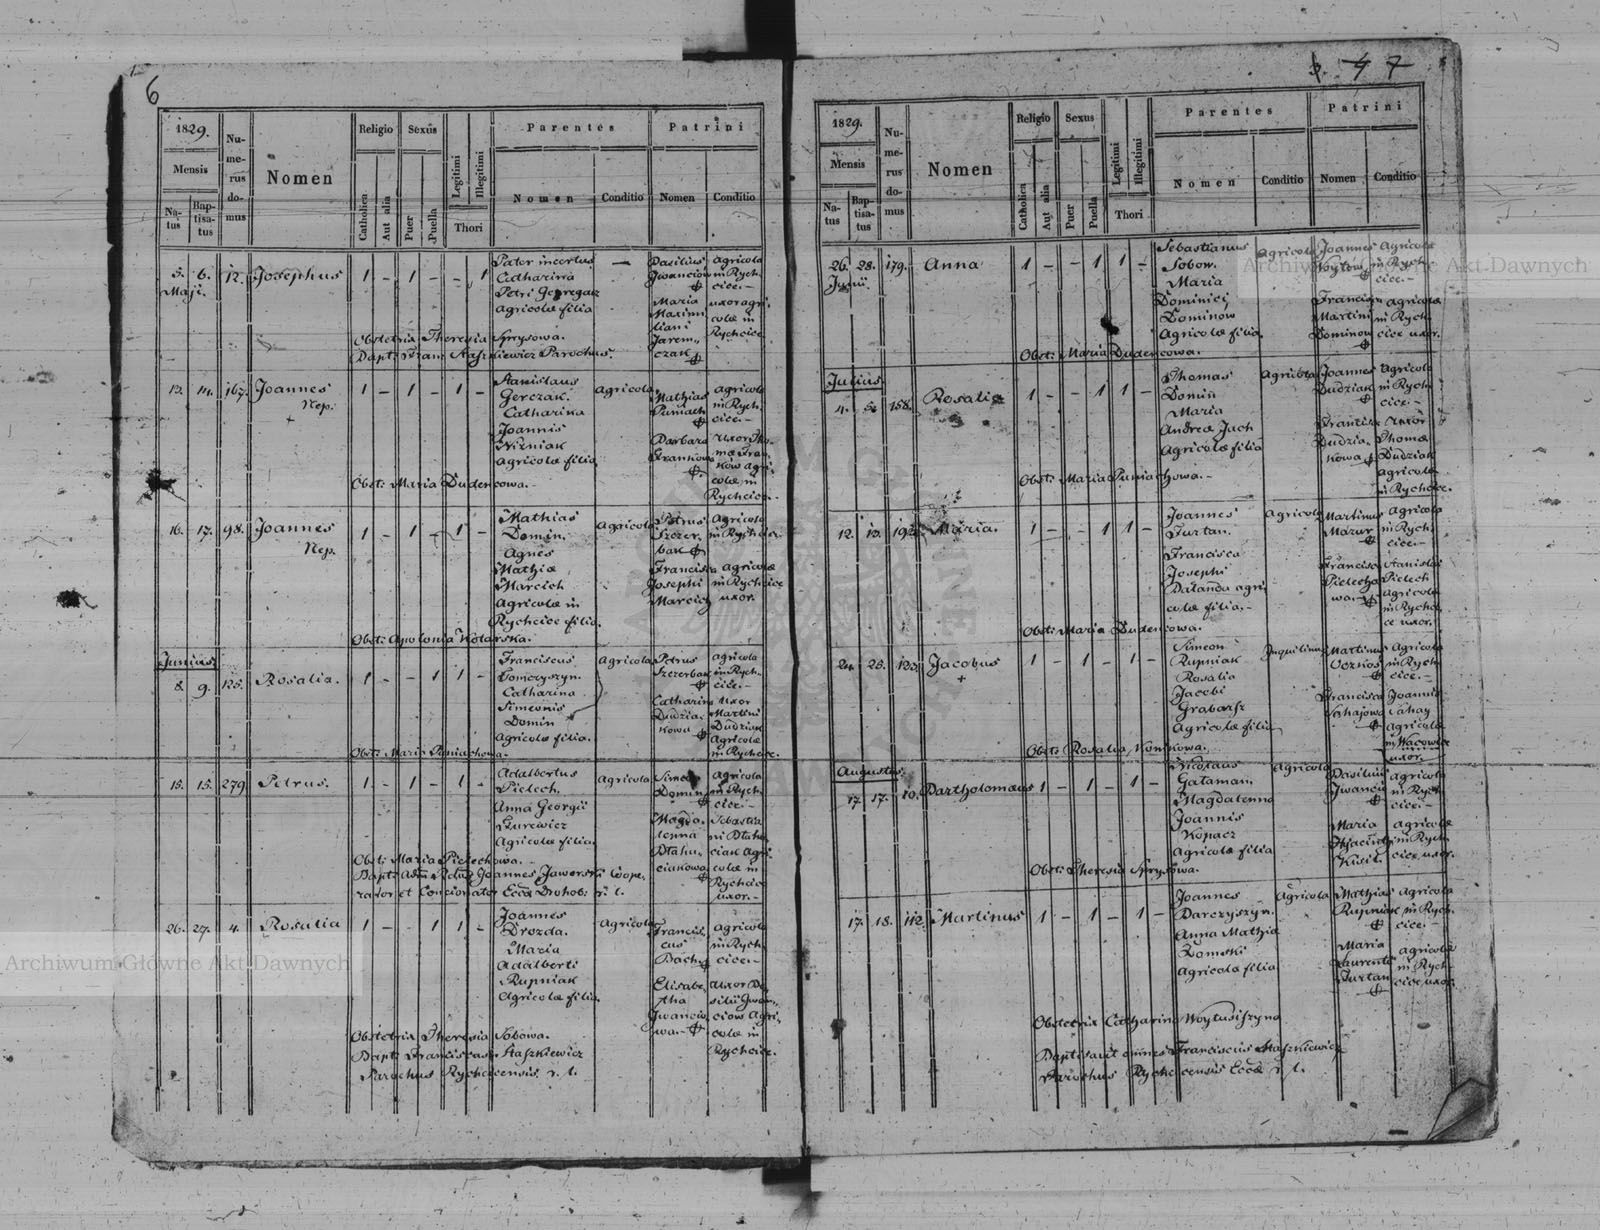 6
1829.
Mensis
Na-
tus
Bap-
tisa-
tus
Nu-
me-
rus
do-
mus
Nomen
Religio
Catholica
Aut alia
Sexus
Puer
Puella
Legitimi
Illegitimi
Thori
Parentes
Nomen
Conditio
Patrini
Nomen
Conditio
5. 6. 12. Josephus 1 - 1 - - 1
Maji.
Pater incertus
Catharina
Petri
Agricolæ filia
Basilius
Iwanciow
Maria
Maximi
liani
Jarem
czak
agricola
in Rych
cice.-
uxor agri
colæ in
Rychcice
Obstetrix Theresia Sprysowa.
Bapt: Fran: Staszkiewicz Parochus.
13. 14. 167. Joannes 1 - 1 - 1 -
Nep.
Stanislaus
Gerczak.
Catharina
Joannis
Nizniak
Agricolæ filia
Agricola
Mathias
Puniach
Barbara
Frankowa
agricola
in Rych
cice.-
uxor Tho-
mæ Fran
kow agri
colæ in
Rychcice.-
Obst: Maria Dudencowa.-
16. 17. 98. Joannes 1 - 1 - 1 -
Nep.
Mathias
Domin.
Agnes
Mathiæ
Marcich
Agricolæ in
Rychcice filia.
Agricola
Petrus
Szczer
bak
Francisca
Josephi
Marcich
Agricola
in Rychcice.
agricolæ
in Rychcice
uxor.
Obst: Apolonia Kolarska.
Junius
8 9. 125. Rosalia. 1 - - 1 1 -
Franciscus
Tomczyszyn.
Catharina
Simeonis
Domin
Agricolæ filia.
Agricola
Petrus
Szczerbak
Catharina
Dudzia
kowa
agricola
in Rych
cice.-
uxor
Martini
Dudziak
Agricolæ
in Rychcice.
Obst: Maria Puniachowa.
15. 15. 279 Petrus. 1 - 1 - 1 -
Adalbertus
Pielech.
Anna Georgii
Agricolæ filia.
Agricola
Simeon
Domin
Magda
lenna
ciakowa
agricola
in Rych
cice.-
Sebastia
ni
ciak Agri
colæ in
Rychcice
uxor.-
Obst: Maria Pielechowa.
Bapt: Adm: Joannes Jaworski Coope
rator et Concionator Drohob: r. l.
26. 27. 4. Rosalia 1 - - 1 1 -
Joannes
Drozda.
Maria
Adalberti
Rupniak
Agricolæ filia.
Agricola
Francis
cus
Bach
Elisabe
tha
Iwancio
wa.-
agricola
in Rych
cice.-
uxor Ba
silii Iwan
ciow Agri
colæ in
Rychcice.
Obstetrix Theresia Sobowa.
Bapt: Franciscus Staszkiewicz
Parochus Rychcicensis r. l.
7
1829.
Mensis
Na-
tus
Bap-
tisa-
tus
Nu-
me-
rus
do-
mus
Nomen
Religio
Catholica
Aut alia
Sexus
Puer
Puella
Legitimi
Illegitimi
Thori
Parentes
Nomen
Conditio
Patrini
Nomen
Conditio
26. 28. 179. Anna 1 - - 1 1 -
Junii.
Sebastianus
Sobow.
Maria
Dominici
Dominow
Agricolæ filia
Agricola
Joannes
Woytow
Francisca
Martini
Dominow
Agricola
in Rych
cice.-
agricolæ
in Rych
cice uxor.
Obst: Maria Dudencowa.
Junius
4. 5. 158. Rosalia 1 - - 1 1 -
Thomas
Domin
Maria
Andreæ Jach
Agricolæ filia
Agricola
Joannes
Dudziak
Francisca
Dudzia
kowa
agricola
in Rych
cice.-
uxor
Thomæ
Dudziak
agricolæ
in Rychcice.
Obst: Maria Puniachowa.-
12. 13. Maria. 1 - - 1 1 -
Joannes
Furtan.
Francisca
Josephi
Balanda agri
colæ filia.-
Agricola
Martinus
Mazur
Francisca
Pielecho
wa.-
Agricola
in Rych
cice.-
Stanislai
Pielech
Agricolæ
in Rychci
ce uxor.
Obst: Maria Dudencowa.
24. 25. 123. Jacobus 1 - 1 - 1 -
Simeon
Rupniak
Rosalia
Jacobi
Grabarz
Agricolæ filia
Inquilinus
Martinus
Francisca
Sahajowa
Agricola
in Rych
cice.-
Joannis
Sahay
agricolæ
in Wacowice
uxor.
Obst: Rosalia Konikowa.
Augustus
17. 17. 10. Bartholomæus 1 - 1 - 1 -
Nicolaus
Gataman.
Magdalenna
Joannis
Kopacz
Agricolæ filia
Agricola
Basilius
Iwanciw
Maria
Hyacinthi
Kusil.
agricola
in Rych
cice.-
agricolæ
in Rych
cice uxor.
Obst: Theresia Sprysowa.
17. 18. 112. Martinus 1 - 1 - 1 -
Joannes
Darczyszyn.
Anna Mathiæ
Domski
Agricolæ filia
Agricola
Mathias
Rupniak
Maria
Laurentii
Furtan
Agricola
in Rych.
cice.-
agricolæ
in Rych
cice uxor.
Obstetrix Catharina Woytusiszyno
Baptisavit omnes Franciscus Staszkiewicz
Parochus Rychcicensis r. l.
Archiwum Główne Akt Dawnych
Archiwum Główne Akt Dawnych